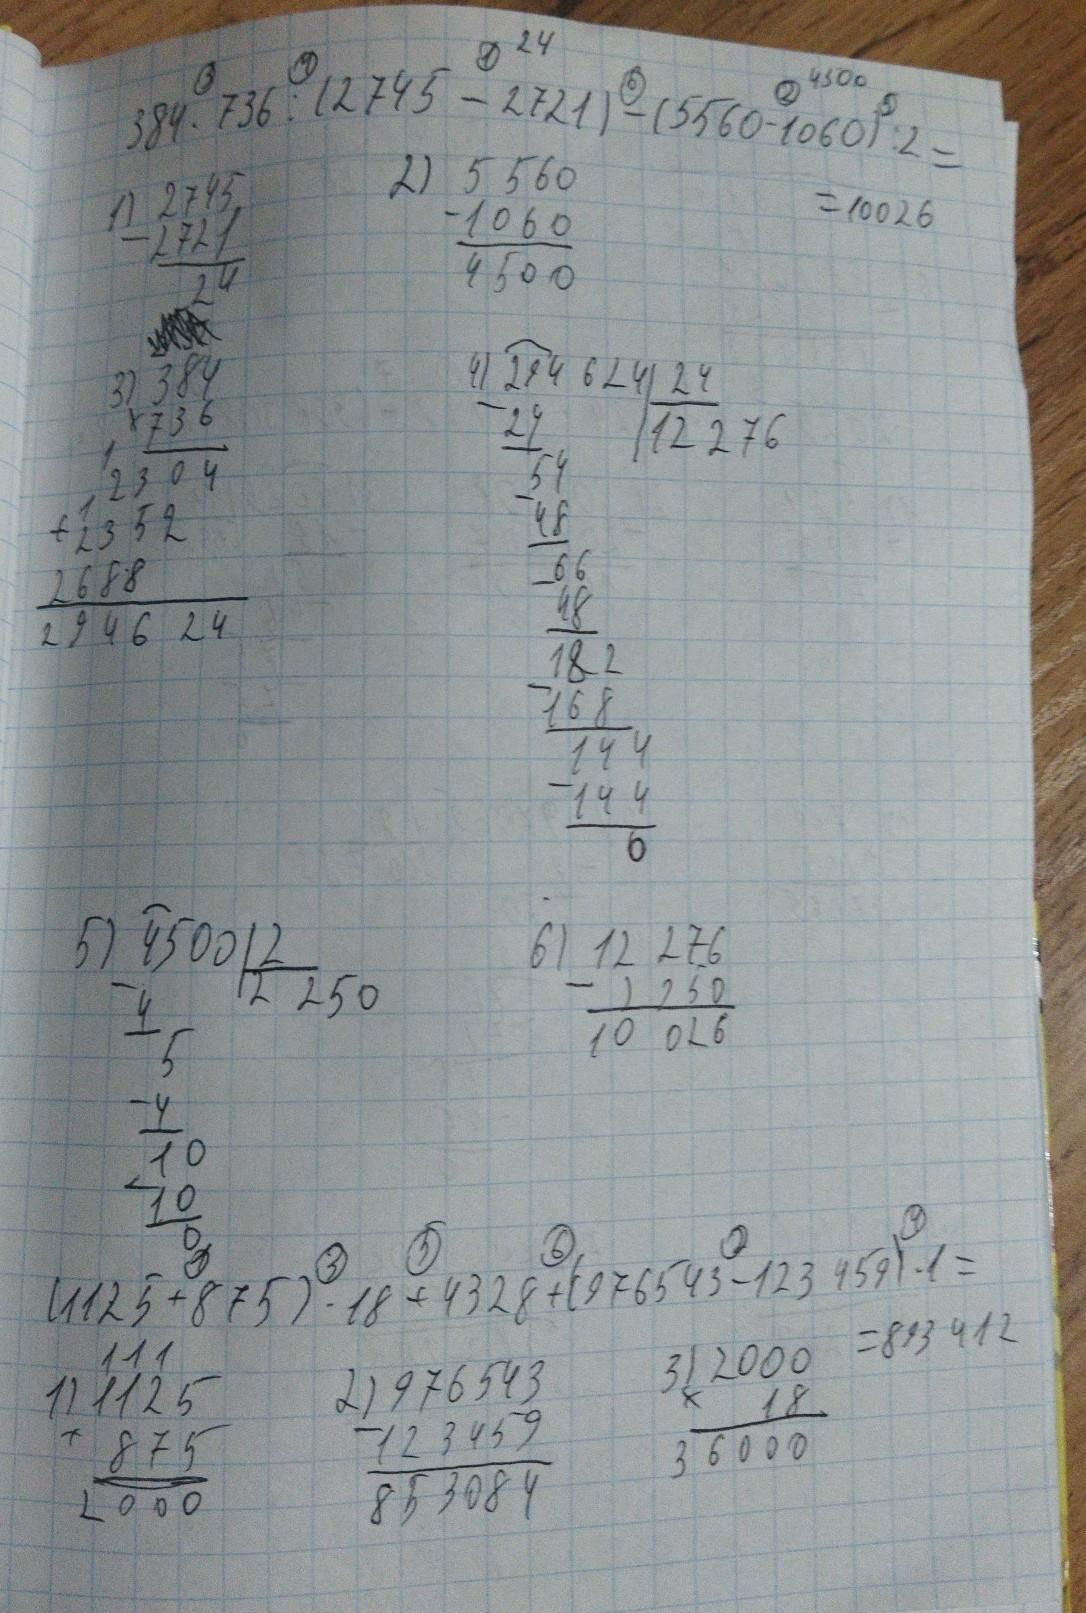 ③ ④ ① 24 ⑥ ② 4500 ⑤
384 · 736 : (2745 - 2721) - (5560 - 1060) : 2 =
= 10026
1) 2745
- 2721
24
2) 5 560
- 1060
4500
3) 384
× 736
1
2304
1
+ 2352
2688
2946 24
4) 294 624 | 24
12 276
- 24
54
- 48
- 66
48
182
- 168
144
- 144
0
5) 4500 | 2
2 250
- 4
5
- 4
10
- 10
0
6) 12 276
- 2 250
10 026
① ③ ⑤ ⑥ ② ④
(1125 + 875) · 18 + 4328 + (976543 - 123 459) · 1 =
= 893 412
111
1) 1125
+ 875
2000
2) 976543
- 123459
853084
3) 2000
× 18
36000